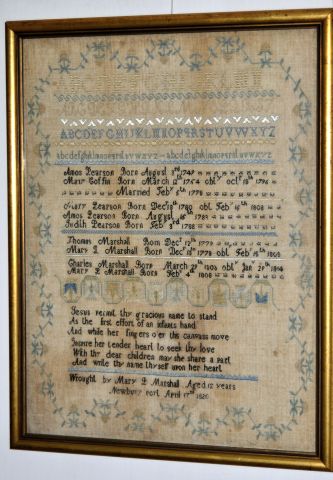 ABCDEFGHIJKLMNOPQRSTUVWXYZ
abcdefghiklmnopqrstuvwxyz
Amos Pearson Born August 3rd 1749
Mary Coffin Born March 12th 1754 obt oct 18th
Married Feb 6th 1778
Mary Pearson Born Dec 15th 1780 obt Feb 16th 1808
Amos Pearson Born August 1783
Judith Pearson Born Feb 3rd 1788
Thomas Marshall Born Dec 12th 1779
Mary L Marshall Born Dec 15th 1780 obt Feb 16th 1808
Charles Marshall Born March 29th 1806 obt Jan 29th
Mary L Marshall Born Feb 4th 1808
Jesus permit thy gracious name to stand
As the first effort of an infants hand
And while her fingers o'er this canvass move
Incline her tender heart to seek thy love
With thy dear children may she share a part
And write thy name thyself upon her heart
Wrought by Mary L Marshall Aged 12 years
Newbury port April 17th 1820